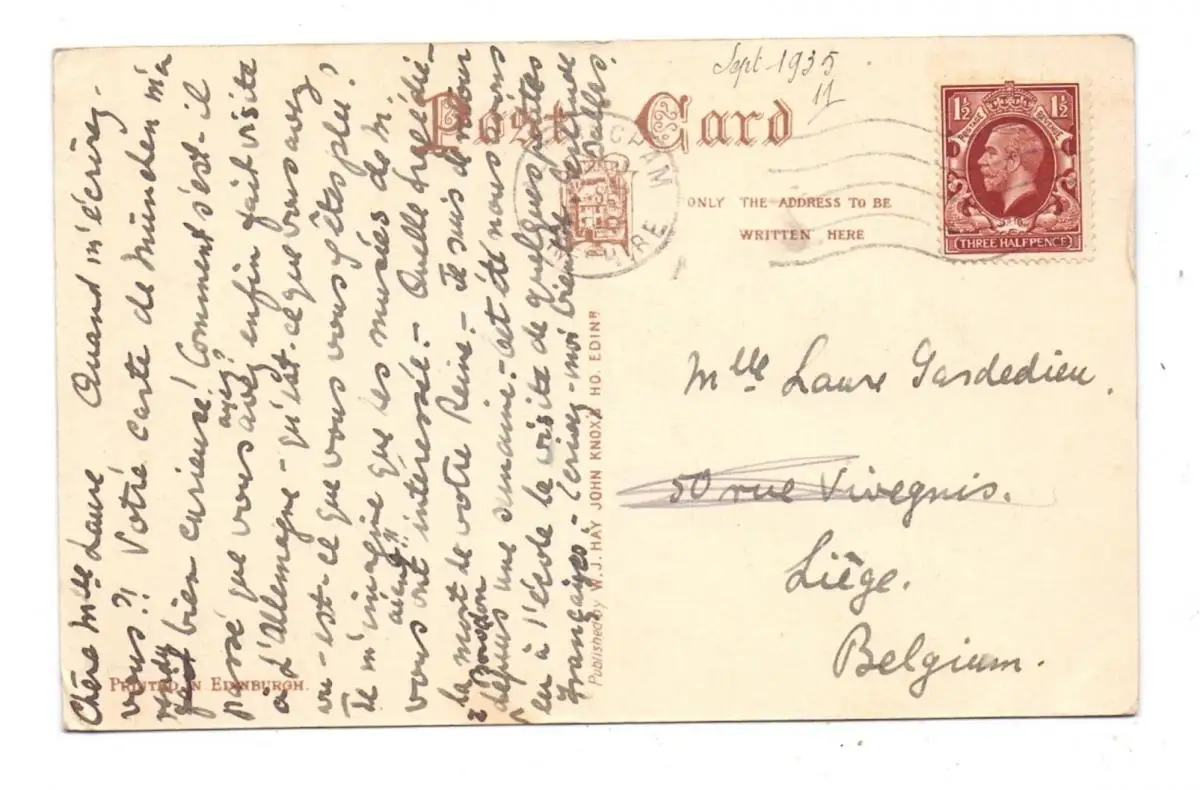 Sept 1935
11
Post Card
ONLY THE ADDRESS TO BE
WRITTEN HERE
1½ 1½
POSTAGE REVENUE
THREE HALFPENCE
Mlle Laure Gardedieu.
50 rue Vivegnis.
Liège.
Belgium.
Published by W. J. HAY JOHN KNOX'S HO. EDINR
PRINTED IN EDINBURGH.
Chère Mlle Laure Quand m'écrirez-
vous?! Votre carte de München m'a
rendu bien curieuse! Comment s'est-il
passé que vous avez enfin fait visite
ayez?
à l'Allemagne - qu'est-ce que vous avez
vu - est-ce que vous vous y êtes plu?
Je m'imagine que les musées de M.
aient?!
vous ont intéressée. - Quelle tragédie -
la mort de votre Reine. - Je suis de retour
à London
depuis une semaine. - Cet été nous avons
eu à l'école la visite de quelques petites
Françaises. - Ecrivez-moi bientôt